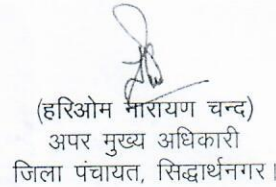 (हरिओम नारायण चन्द)
अपर मुख्य अधिकारी
जिला पंचायत, सिद्धार्थनगर।